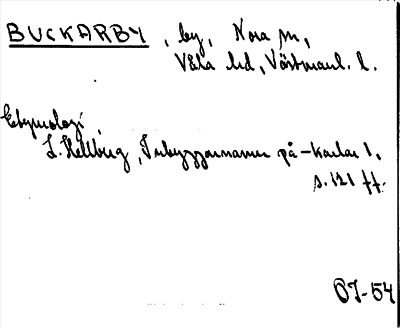 BUCKARBY, by, Nora sn,
Våla hd, Västmanl. l.
Etymologi,
L. Hellberg, Inbyggarnamn på -karlar 1,
s. 121 ff.
OJ-54